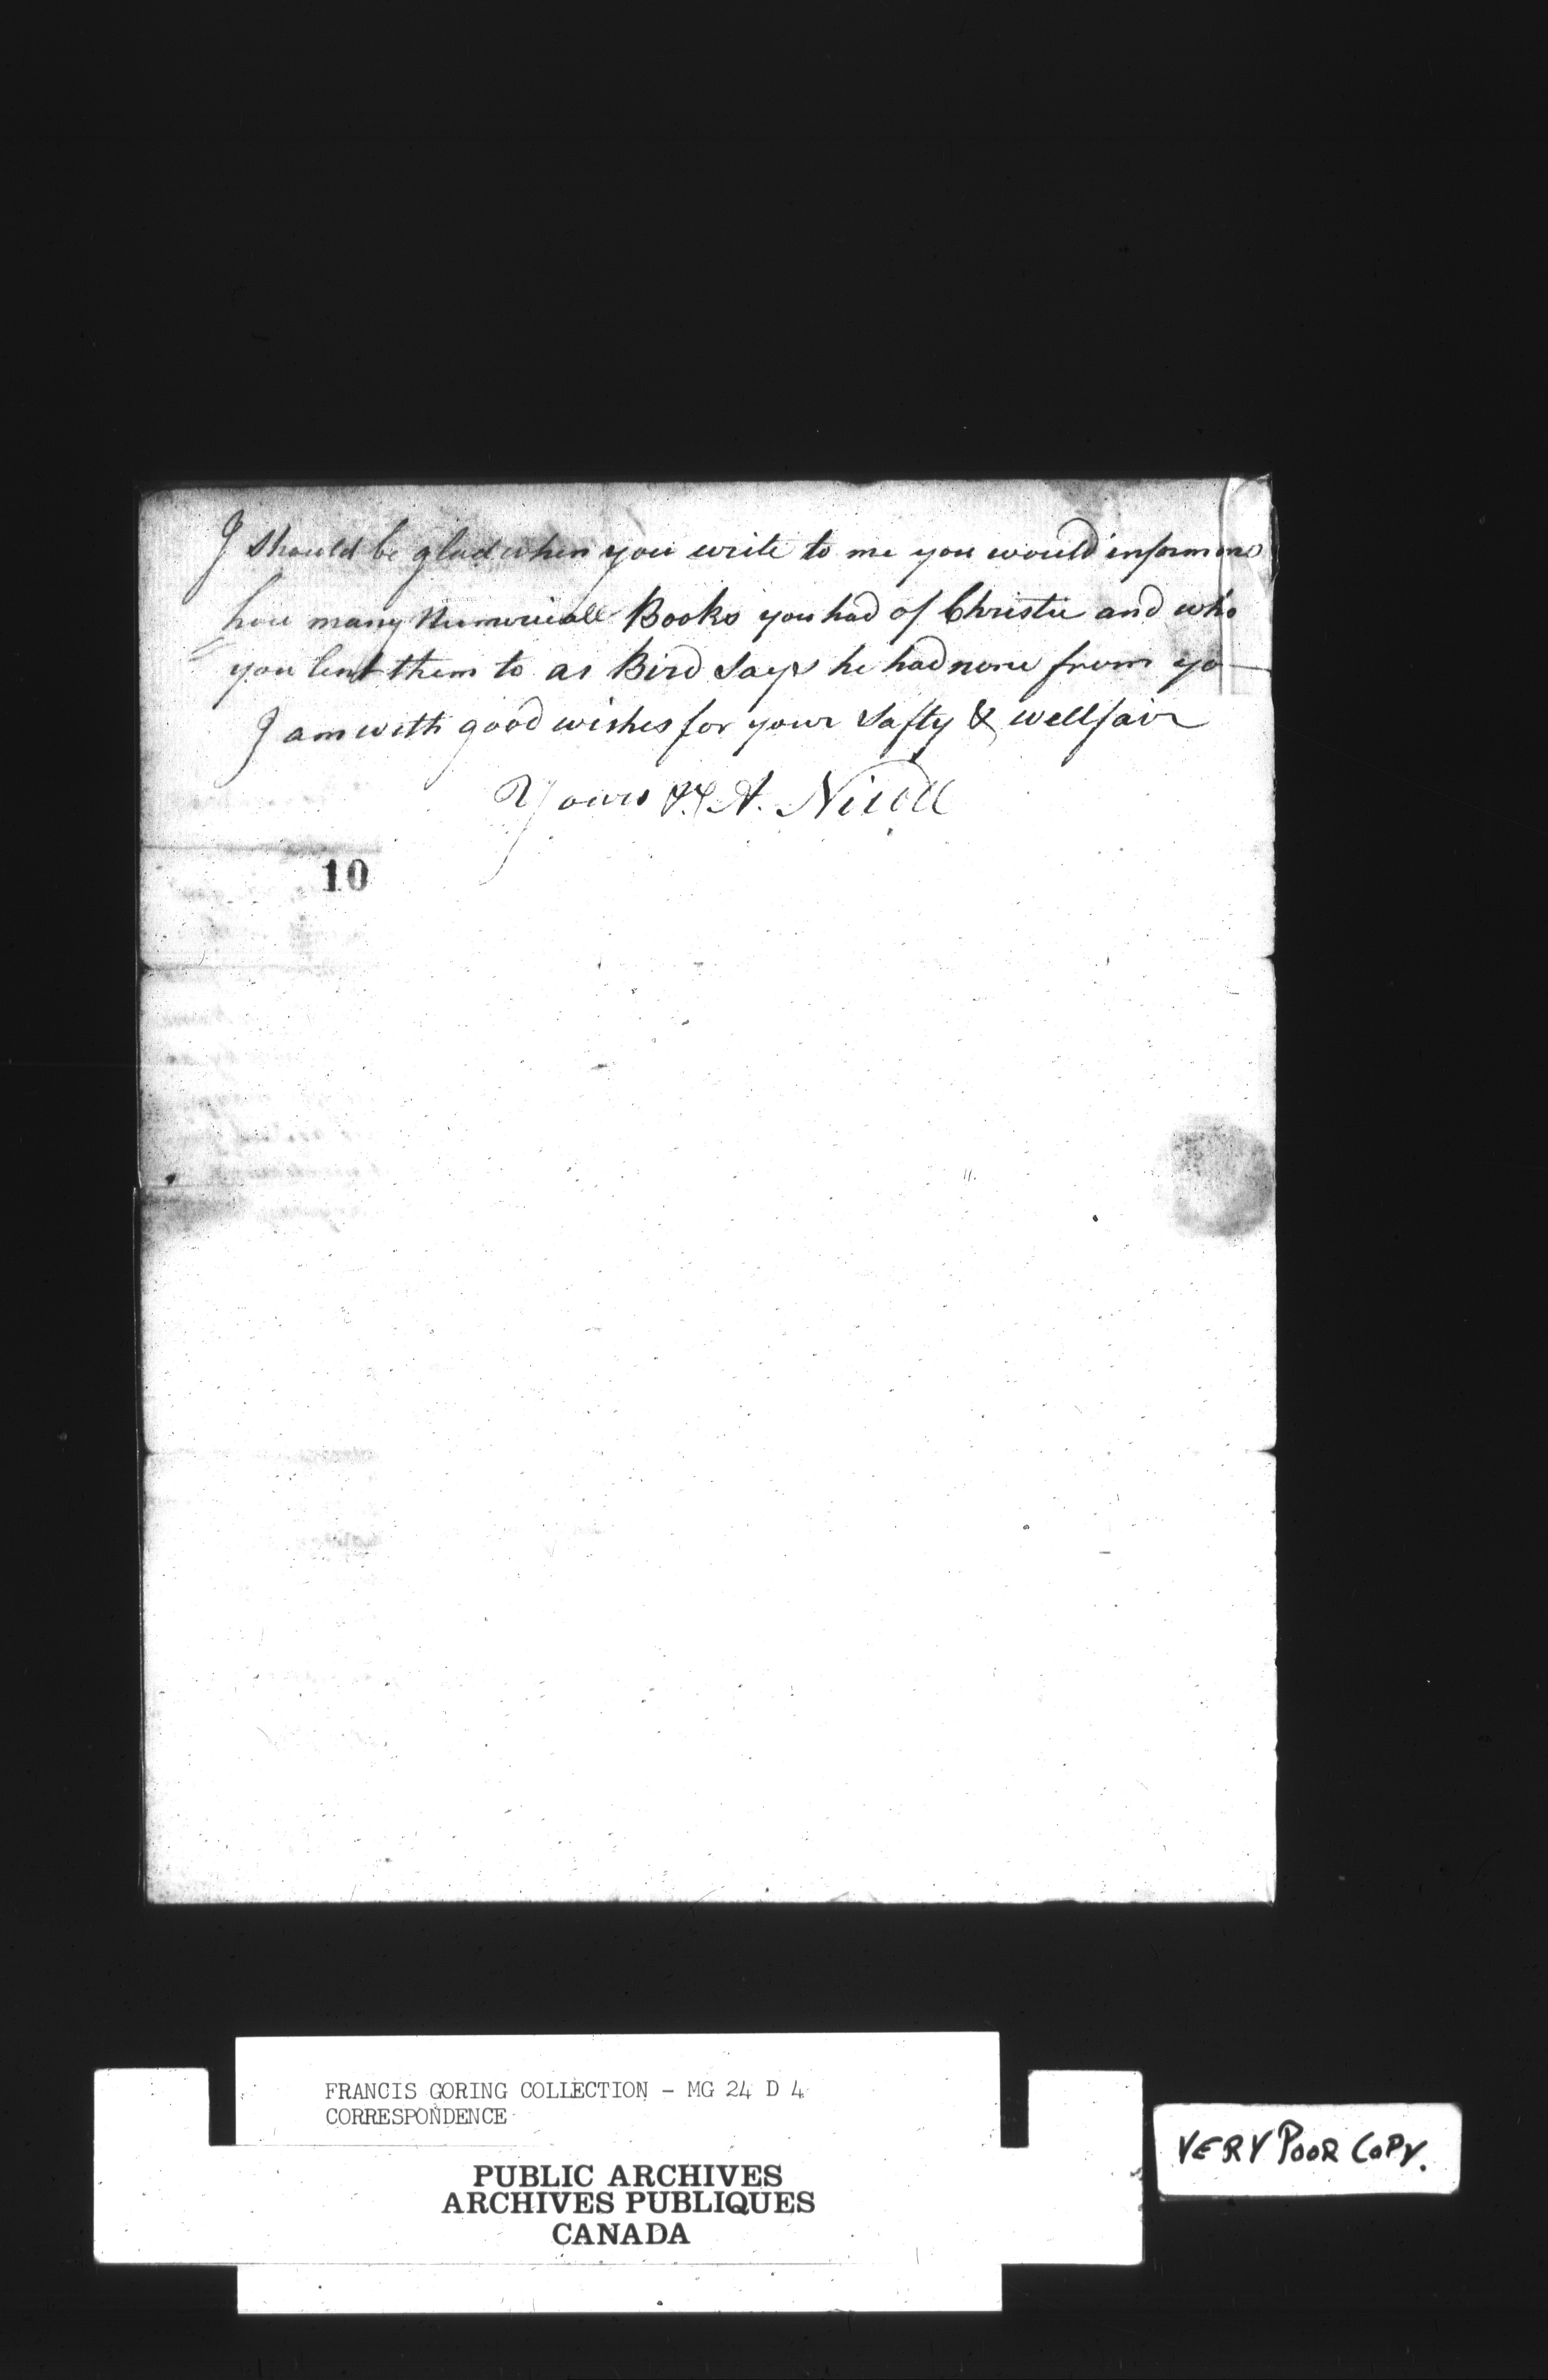 I should be glad when you write to me you would inform me
how many Numericall Books you had of Christie and who
you lent them to as Bird Says he had none from yo
I am with good wishes for your Safty & wellfair
Yours &c A. Nicoll
10
FRANCIS GORING COLLECTION - MG 24 D 4
CORRESPONDENCE
PUBLIC ARCHIVES
ARCHIVES PUBLIQUES
CANADA
VERY POOR COPY.